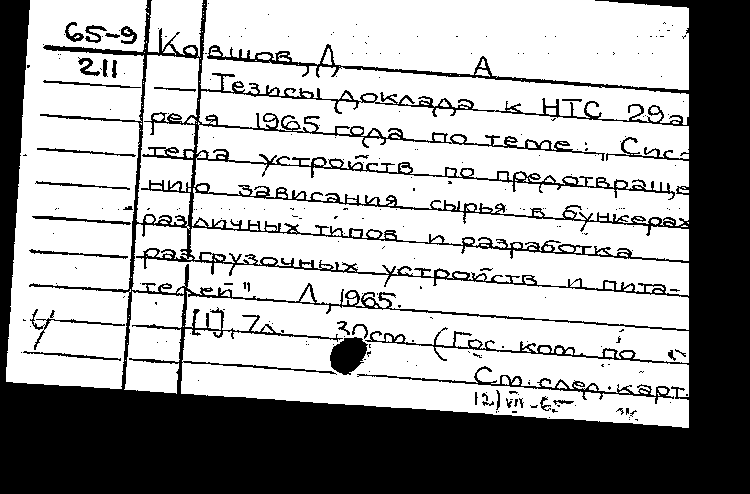 65-9
211
Ковшов, Д. А
Тезисы доклада к НТС 29 ап
реля 1965 года по теме: „Сис-
тема устройств по предотвраще
нию зависания сырья в бункерах
различных типов и разработка
разгрузочных устройств и пита-
телей". Л, 1965.
[1], 7л. 30см. (Гос. ком. по
У
См. след. карт.
12) VII-65